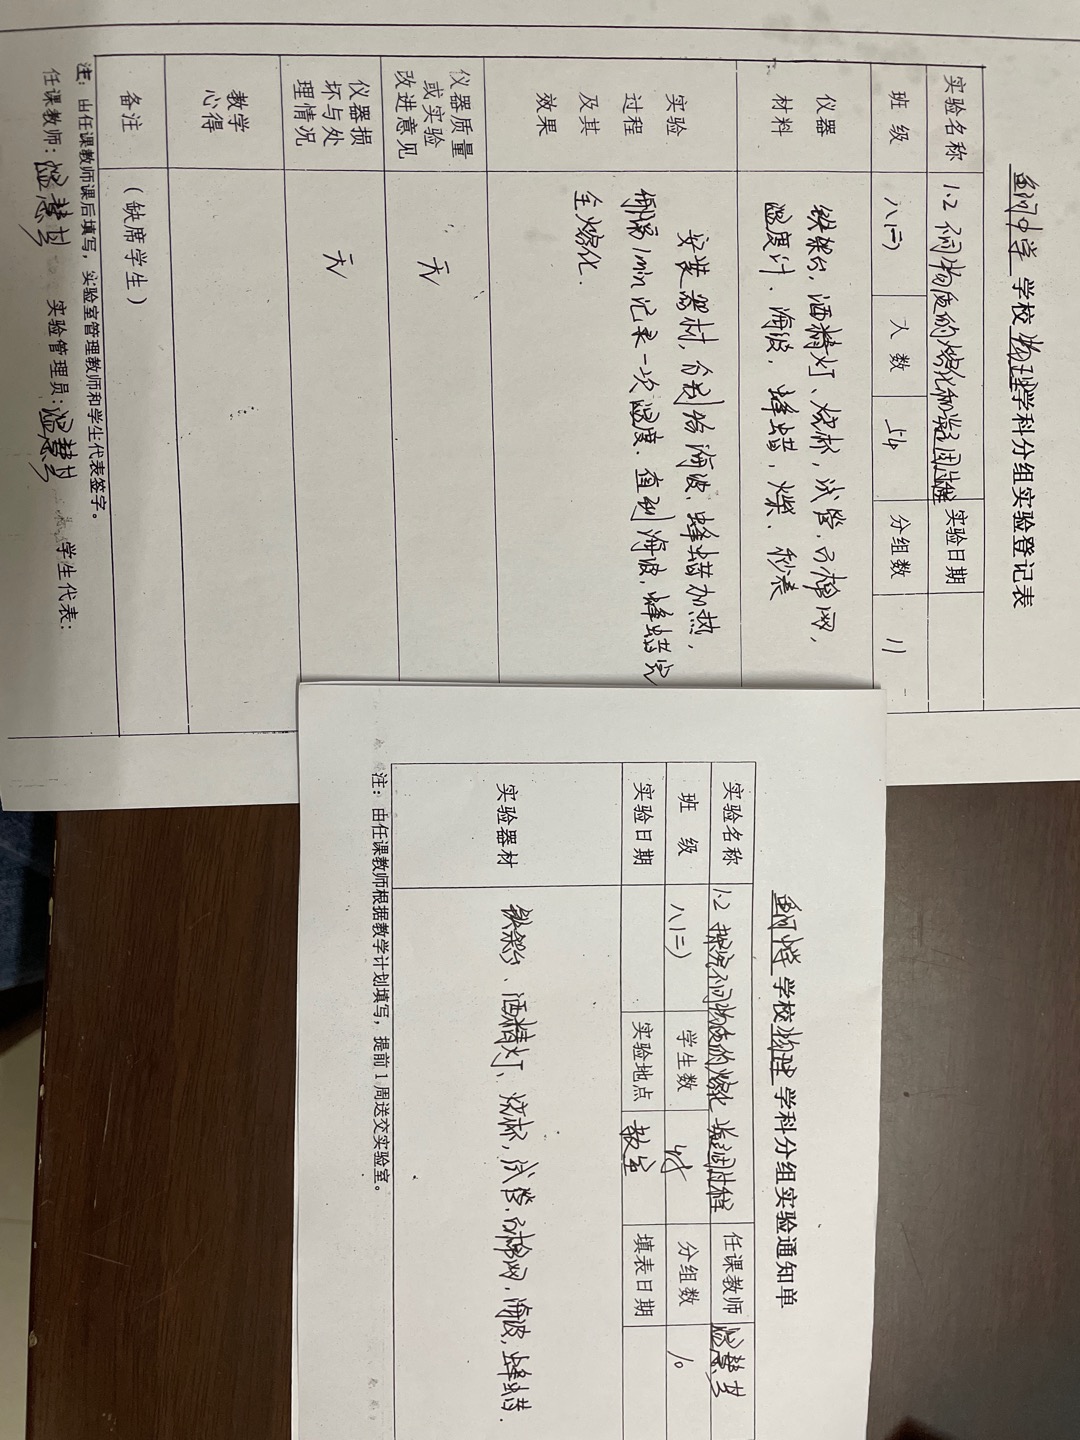 中学 学校 物理 学科分组实验登记表
实验名称 1.2 不同物质的熔化和凝固过程 实验日期
班级 八(二) 人数 54 分组数 11
仪器材料 铁架台,酒精灯、烧杯,试管,石棉网,
温度计、海波,蜂蜡,火柴、秒表
实验过程及其效果 安装器材,分别给海波,蜂蜡加热,
每隔1min记录一次温度,直到海波,蜂蜡完
全熔化.
仪器质量或实验改进意见 无
仪器损坏与处理情况 无
教学心得
备注 (缺席学生)
注:由任课教师课后填写,实验室管理教师和学生代表签字。
任课教师: 实验管理员: 学生代表:
中学 学校 物理 学科分组实验通知单
实验名称 1.2 探究不同物质的熔化 凝固过程 任课教师
班级 八(三) 学生数 分组数 10
实验日期 实验地点 教室 填表日期
实验器材 铁架台、酒精灯、烧杯,试管,石棉网,海波,蜂蜡.
注:由任课教师根据教学计划填写,提前1周送交实验室。